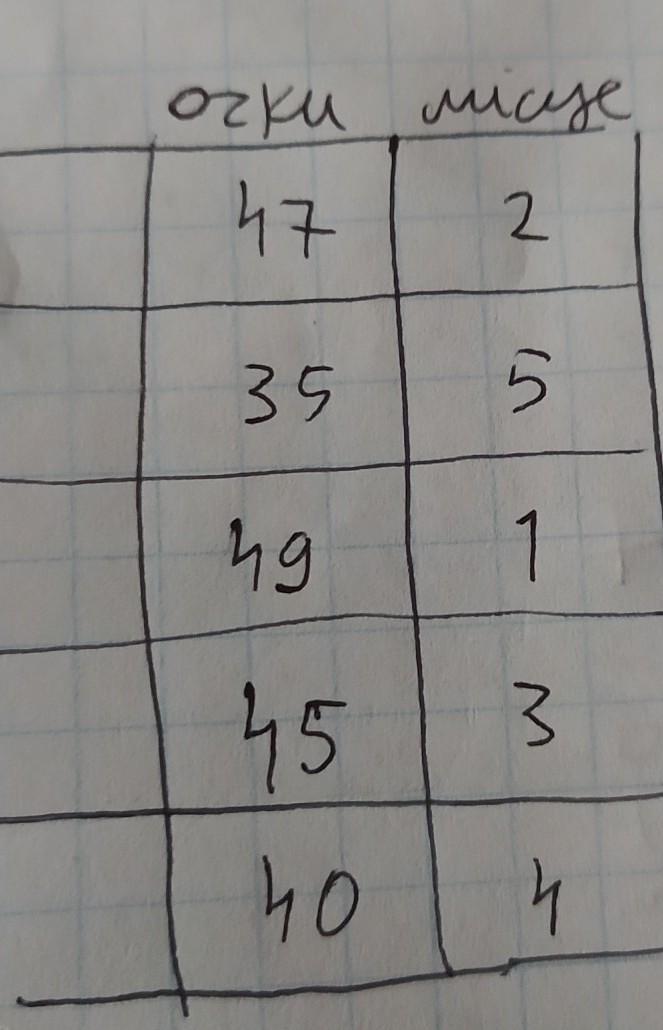 очки місце
47 2
35 5
49 1
45 3
40 4